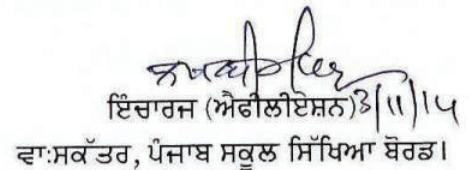 ਇੰਚਾਰਜ (ਐਫੀਲੀਏਸ਼ਨ) 3/11/14
ਵਾ:ਸਕੱਤਰ, ਪੰਜਾਬ ਸਕੂਲ ਸਿੱਖਿਆ ਬੋਰਡ।